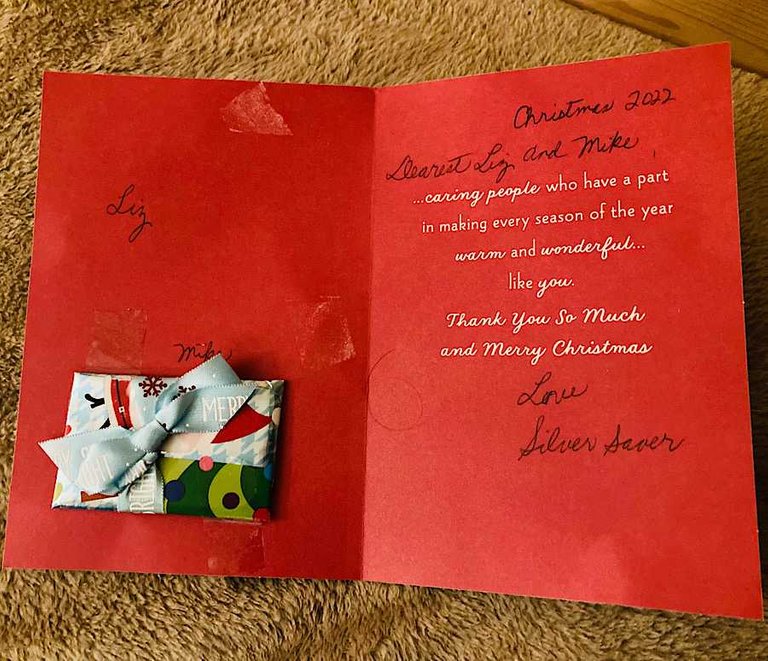 Liz
Mike
MERR
Christmas 2022
Dearest Liz and Mike
...caring people who have a part
in making every season of the year
warm and wonderful...
like you.
Thank You So Much
and Merry Christmas
Love
Silver Saver